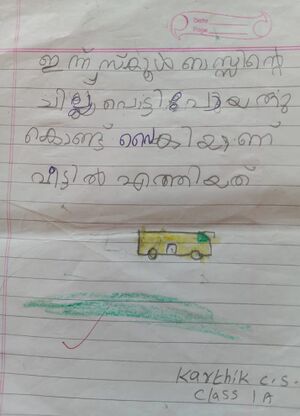 Date
Page
ഇന്ന് സ്കൂൾ ബസ്സിന്റെ
ചില്ല് പൊട്ടി പോയതു
കൊണ്ട് വൈകിയാണ്
വീട്ടിൽ എത്തിയത്
Karthik C.S.
Class 1A